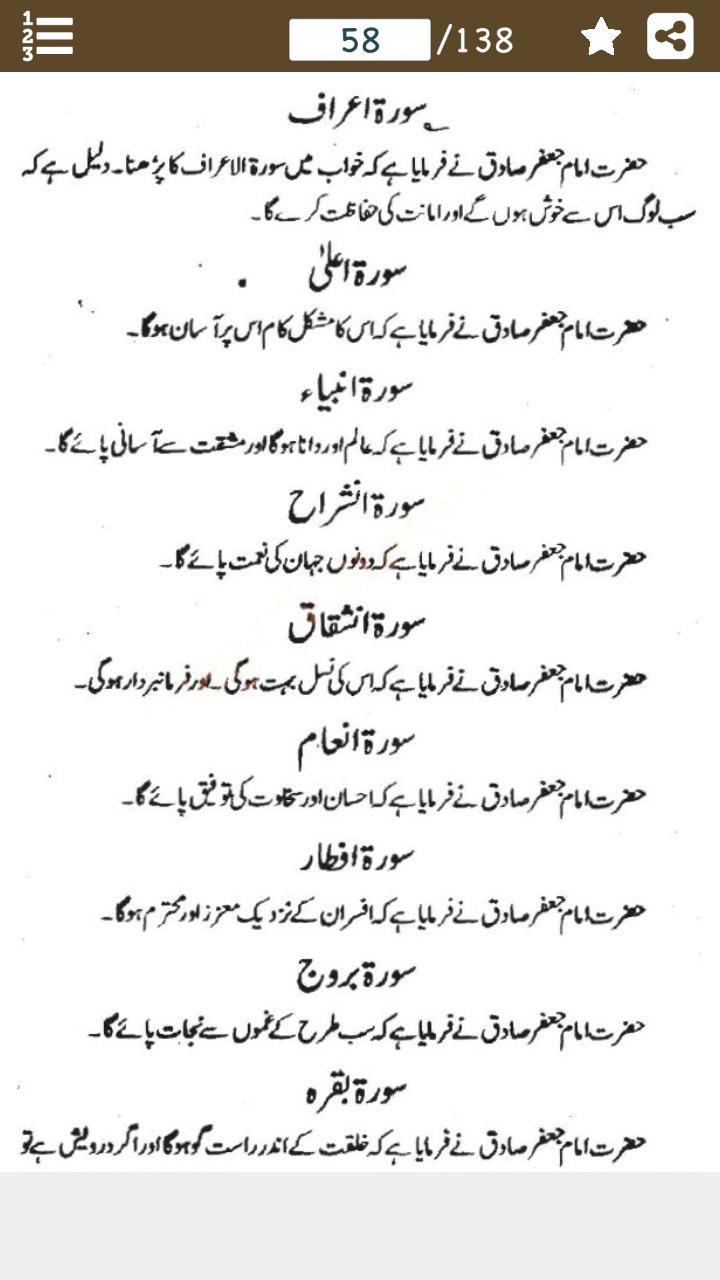 58 /138
سورۃ اعراف
حضرت امام جعفر صادق نے فرمایا ہے کہ خواب میں سورۃ الاعراف کا پڑھنا۔ دلیل ہے کہ
سب لوگ اس سے خوش ہوں گے اور امانت کی حفاظت کرے گا۔
سورۃ اعلیٰ
حضرت امام جعفر صادق نے فرمایا ہے کہ اس کا مشکل کام اس پر آسان ہوگا۔
سورۃ انبیاء
حضرت امام جعفر صادق نے فرمایا ہے کہ عالم اور دانا ہوگا اور مشقت سے آسانی پائے گا۔
سورۃ انشراح
حضرت امام جعفر صادق نے فرمایا ہے کہ دونوں جہان کی نعمت پائے گا۔
سورۃ انشقاق
حضرت امام جعفر صادق نے فرمایا ہے کہ اس کی نسل بہت ہوگی۔ اور فرمانبردار ہوگی۔
سورۃ انعام
حضرت امام جعفر صادق نے فرمایا ہے کہ احسان اور سخاوت کی توفیق پائے گا۔
سورۃ افطار
حضرت امام جعفر صادق نے فرمایا ہے کہ افسران کے نزدیک معزز اور محترم ہوگا۔
سورۃ بروج
حضرت امام جعفر صادق نے فرمایا ہے کہ سب طرح کے غموں سے نجات پائے گا۔
سورۃ بقرہ
حضرت امام جعفر صادق نے فرمایا ہے کہ خلقت کے اندر راست گو ہوگا اور اگر درویش ہے تو